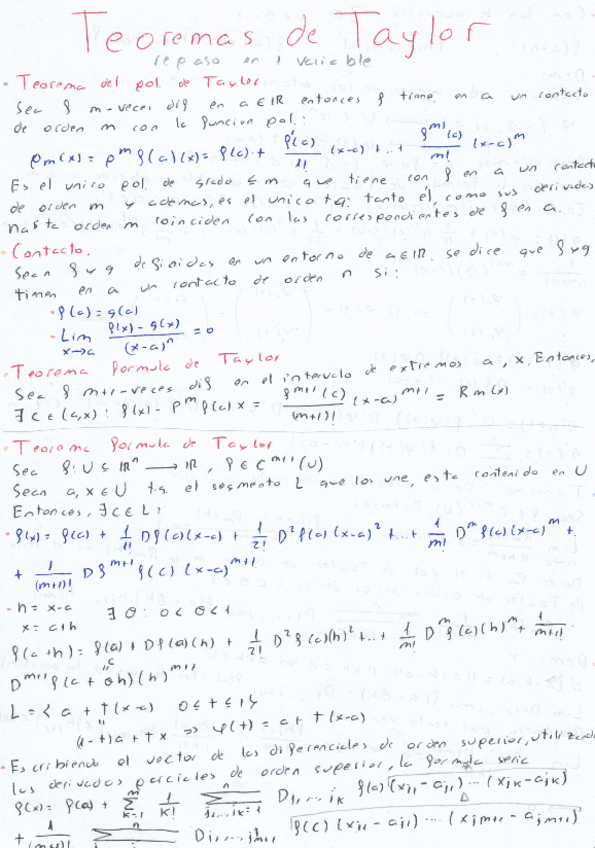 Teoremas de Taylor
repaso en 1 variable
· Teorema del pol. de Taylor
Sea f m-veces dif en a ∈ ℝ entonces f tiene en a un contacto
de orden m con la funcion pol.:
Pm(x) = P^m f(a)(x) = f(a) + f'(a)/1! (x-a) + . + f^m)(a)/m! (x-a)^m
Es el unico pol. de grado ≤ m que tiene con f en a un contacto
de orden m y ademas, es el unico tq: tanto él, como sus derivadas
hasta orden m coinciden con las correspondientes de f en a.
· Contacto.
Sean f y g definidas en un entorno de a ∈ ℝ. se dice que f y g
tienen en a un contacto de orden n si:
· f(a) = g(a)
· Lim x→a f(x) - g(x) / (x-a)^n = 0
· Teorema formula de Taylor
Sea f m+1-veces dif en el intervalo de extremos a, x, Entonces,
∃ c ∈ (a,x) : f(x) - P^m f(a) x = f^m+1(c)/(m+1)! (x-a)^m+1 = Rm(x)
· Teorema formula de Taylor
Sea f: U ⊆ ℝ^n → ℝ, f ∈ C^m+1(U)
Sean a, x ∈ U t.q el segmento L que los une, esta contenido en U
Entonces, ∃ c ∈ L:
· f(x) = f(a) + 1/1! Df(a)(x-a) + 1/2! D²f(a)(x-a)² + ... + 1/m! D^m f(a)(x-a)^m +
+ 1/(m+1)! Df^m+1 f(c) (x-a)^m+1
· h = x-a ∃ θ: 0 < θ < 1
x = a+h
f(a+h) = f(a) + Df(a)(h) + 1/2! D²f(a)(h)² + ... + 1/m! D^m f(a)(h)^m + 1/m+1! ·
c
"
D^m+1 f(a + θh)(h)^m+1
L = { a + t(x-a) 0 ≤ t ≤ 1 }
"
(1-t)a + tx ⇒ φ(t) = a + t(x-a)
· Escribiendo el vector de las diferenciales de orden superior, utilizando
las derivadas parciales de orden superior, la formula seria
f(x) = f(a) + Σ k=1 m 1/k! Σ j1,...,jk=1 n Dj1,...,jk f(a) (xj1 - aj1) ... (xjk - ajk)
+ 1/(m+1)! Σ n Dj1,...,jm+1 f(c) (xj1 - aj1) ... (xjm+1 - ajm+1)